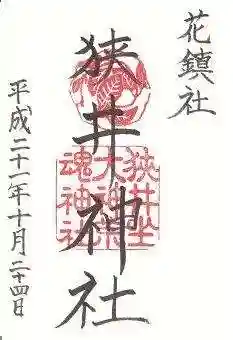 花鎮社
狭井神社
狭井坐
大神荒
魂神社
平成二十一年十月二十四日